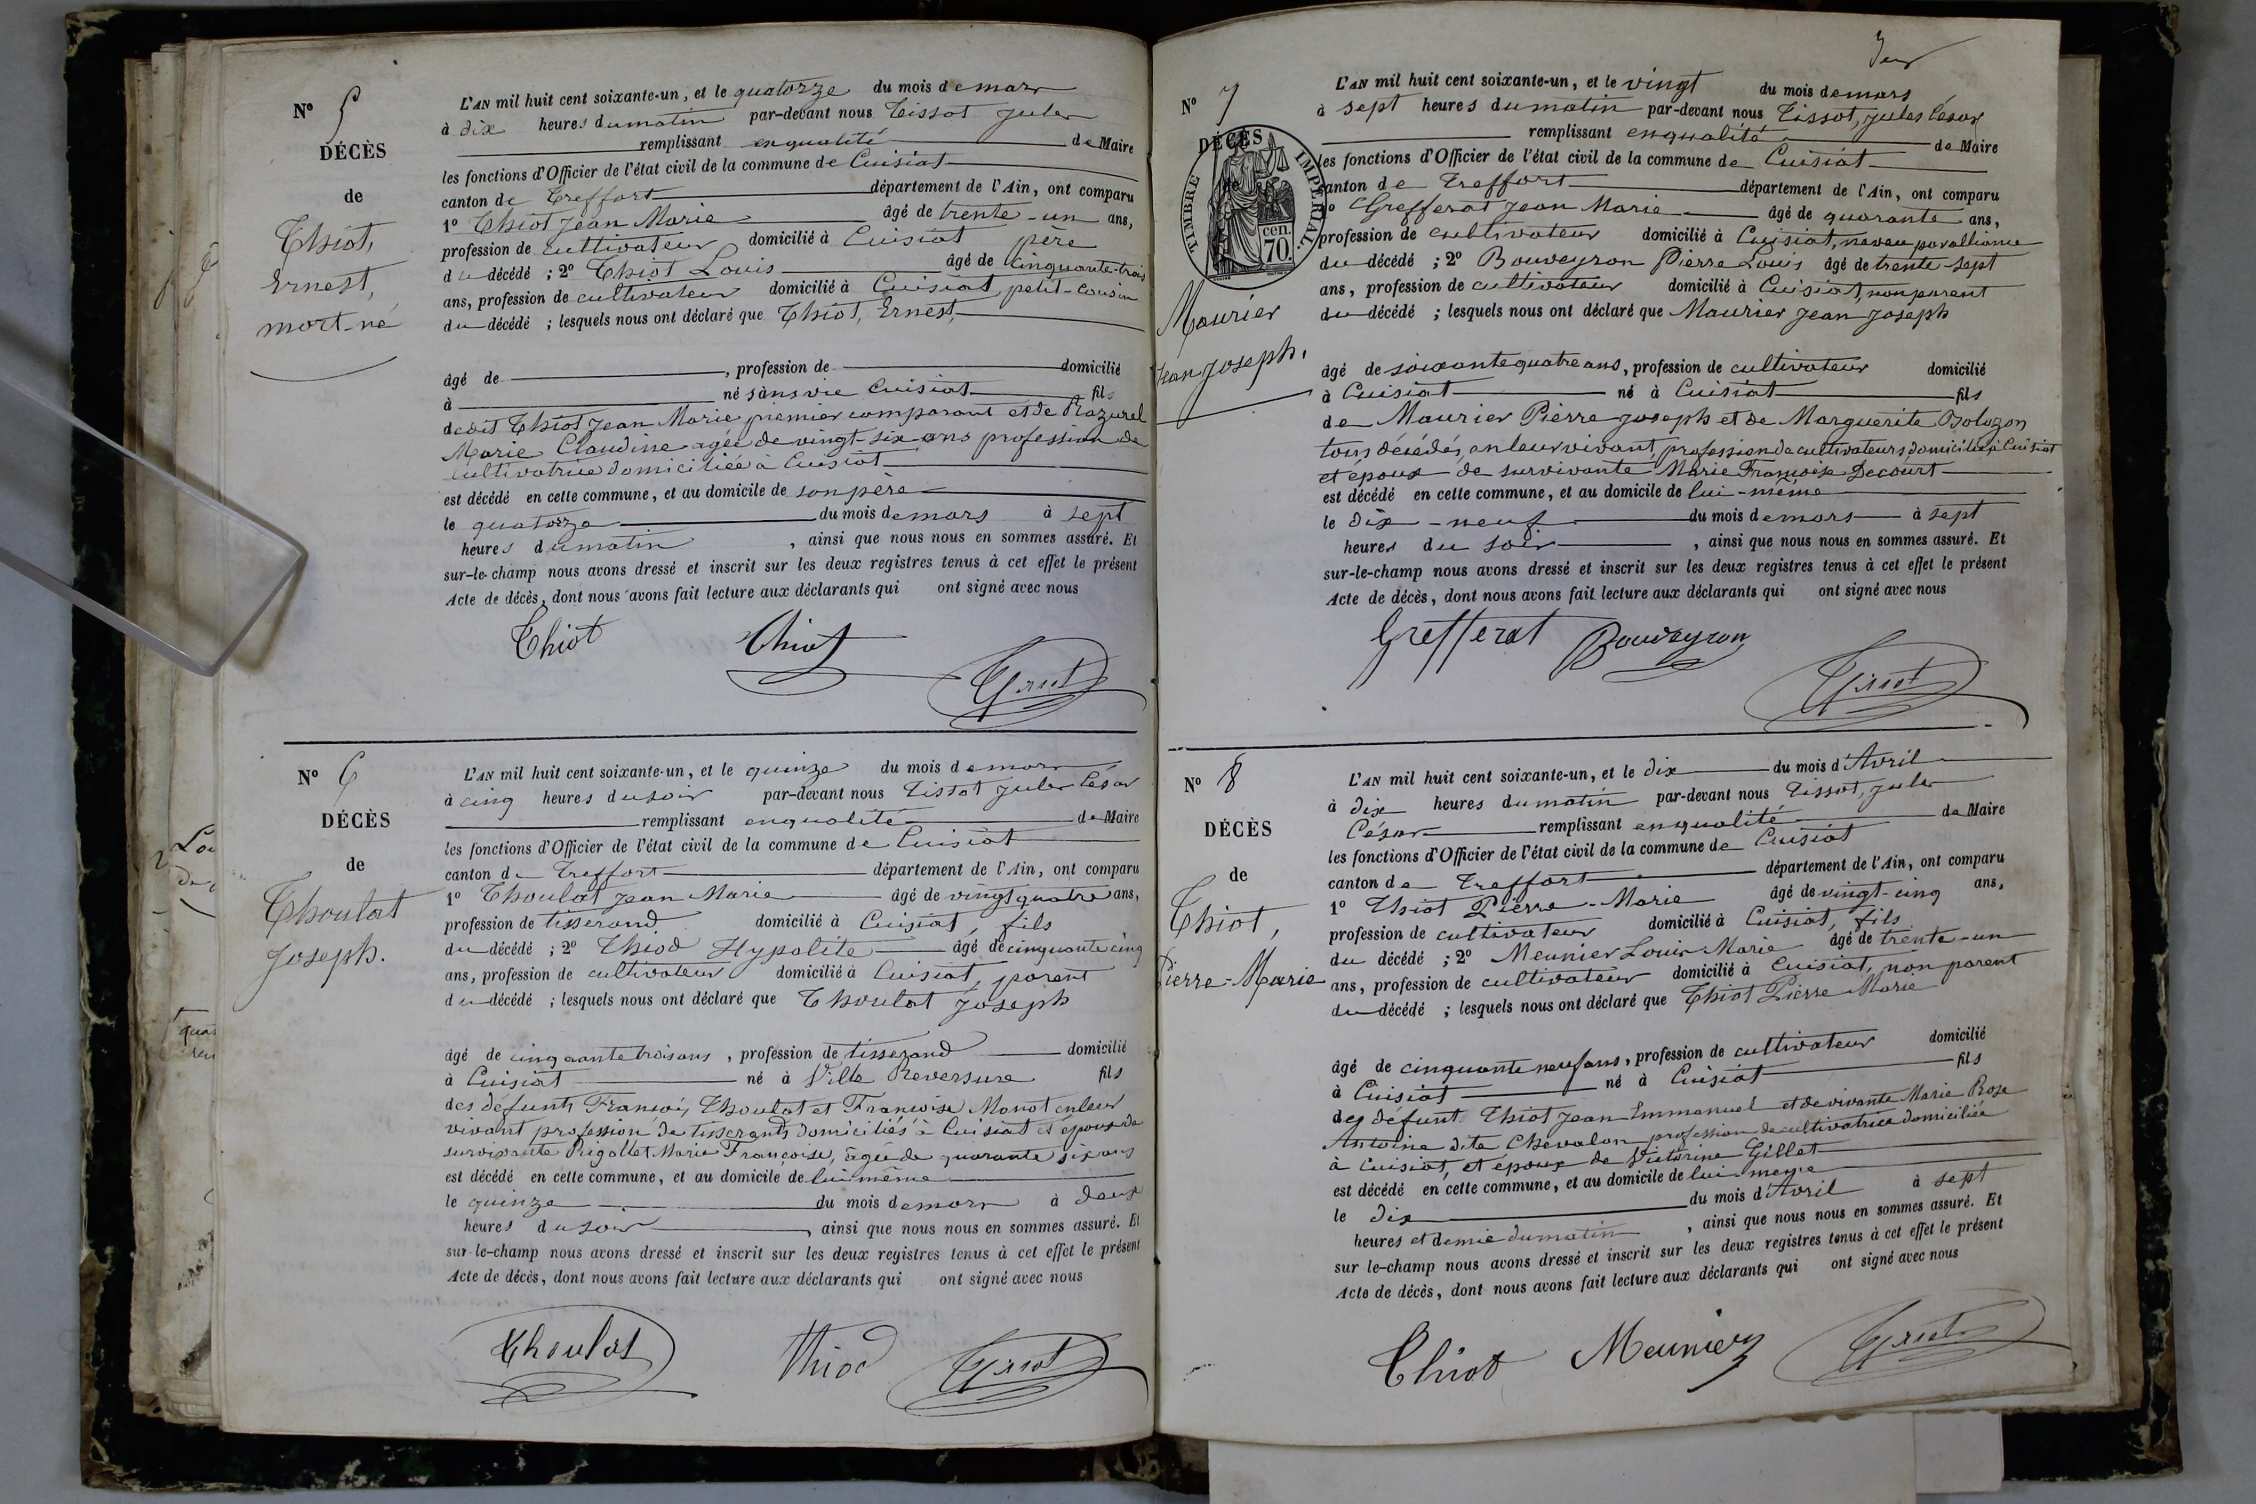 N° 5
DÉCÈS
de
Thiot,
Ernest,
mort-né
L'AN mil huit cent soixante-un, et le quatorze du mois de mars
à dix heures du matin par-devant nous Tissot Jules
remplissant en qualité de Maire
les fonctions d'Officier de l'état civil de la commune de Cuisiat
canton de Treffort département de l'Ain, ont comparu
1° Thiot Jean Marie âgé de trente-un ans,
profession de cultivateur domicilié à Cuisiat père
du décédé ; 2° Thiot Louis âgé de cinquante-trois
ans, profession de cultivateur domicilié à Cuisiat, petit-cousin
du décédé ; lesquels nous ont déclaré que Thiot, Ernest,
âgé de , profession de domicilié
à né sans vie Cuisiat fils
de dit Thiot Jean Marie premier comparant et de Razurel
Marie Claudine agée de vingt-six ans profession de
cultivatrice domiciliée à Cuisiat
est décédé en cette commune, et au domicile de son père
le quatorze du mois de mars à sept
heures du matin , ainsi que nous nous en sommes assuré. Et
sur-le-champ nous avons dressé et inscrit sur les deux registres tenus à cet effet le présent
Acte de décès, dont nous avons fait lecture aux déclarants qui ont signé avec nous
Thiot Thiot
N° 6
DÉCÈS
de
Thoulat
Joseph.
L'AN mil huit cent soixante-un, et le quinze du mois de mars
à cinq heures du soir par-devant nous Tissot Jules César
remplissant en qualité de Maire
les fonctions d'Officier de l'état civil de la commune de Cuisiat
canton de Treffort département de l'Ain, ont comparu
1° Thoulat Jean Marie âgé de vingt quatre ans,
profession de tisserand domicilié à Cuisiat, fils
du décédé ; 2° Thiod Hypolite âgé de cinquante cinq
ans, profession de cultivateur domicilié à Cuisiat, parent
du décédé ; lesquels nous ont déclaré que Thoulat Joseph
âgé de cinquante trois ans , profession de tisserand domicilié
à Cuisiat né à Ville Reversure fils
des défunts François Thoulat et Françoise Monot en leur
vivant profession de tisserants domiciliés à Cuisiat et époux de
survivante Rigollet Marie Françoise, âgée de quarante six ans
est décédé en cette commune, et au domicile de lui même
le quinze du mois de mars à deux
heures du soir , ainsi que nous nous en sommes assuré. Et
sur-le-champ nous avons dressé et inscrit sur les deux registres tenus à cet effet le présent
Acte de décès, dont nous avons fait lecture aux déclarants qui ont signé avec nous
Thoulat Thiod
N° 7
DÉCÈS
TIMBRE IMPÉRIAL.
cen.
70.
Maurier
Jean Joseph.
L'AN mil huit cent soixante-un, et le vingt du mois de mars
à sept heures du matin par-devant nous Tissot, Jules César
remplissant en qualité de Maire
les fonctions d'Officier de l'état civil de la commune de Cuisiat
canton de Treffort département de l'Ain, ont comparu
1° Grefferat Jean Marie âgé de quarante ans,
profession de cultivateur domicilié à Cuisiat, neveu par alliance
du décédé ; 2° Bouveyron Pierre Louis âgé de trente-sept
ans, profession de cultivateur domicilié à Cuisiat, non parent
du décédé ; lesquels nous ont déclaré que Maurier Jean Joseph
âgé de soixante quatre ans, profession de cultivateur domicilié
à Cuisiat né à Cuisiat fils
de Maurier Pierre Joseph et de Marguerite Bolozon
tous décédés, en leur vivant, profession de cultivateurs domiciliés à Cuisiat
et époux de survivante Marie Françoise Decourt
est décédé en cette commune, et au domicile de lui-même
le dix-neuf du mois de mars à sept
heures du soir , ainsi que nous nous en sommes assuré. Et
sur-le-champ nous avons dressé et inscrit sur les deux registres tenus à cet effet le présent
Acte de décès, dont nous avons fait lecture aux déclarants qui ont signé avec nous
Grefferat Bouveyron
N° 8
DÉCÈS
de
Thiot,
Pierre-Marie
L'AN mil huit cent soixante-un, et le dix du mois d'Avril
à dix heures du matin par-devant nous Tissot, Jules
César remplissant en qualité de Maire
les fonctions d'Officier de l'état civil de la commune de Cuisiat
canton de Treffort département de l'Ain, ont comparu
1° Thiot Pierre-Marie âgé de vingt-cinq ans,
profession de cultivateur domicilié à Cuisiat, fils
du décédé ; 2° Meunier Louis Marie âgé de trente-un
ans, profession de cultivateur domicilié à Cuisiat, non parent
du décédé ; lesquels nous ont déclaré que Thiot Pierre Marie
âgé de cinquante neuf ans, profession de cultivateur domicilié
à Cuisiat né à Cuisiat fils
des défunt Thiot Jean Immanuel et de vivante Marie Rose
Antoine dite Chevalon profession de cultivatrice domiciliée
à Cuisiat, et époux de Victorine Gillet
est décédé en cette commune, et au domicile de lui meme
le dix du mois d'Avril à sept
heures et demie du matin , ainsi que nous nous en sommes assuré. Et
sur le-champ nous avons dressé et inscrit sur les deux registres tenus à cet effet le présent
Acte de décès, dont nous avons fait lecture aux déclarants qui ont signé avec nous
Thiot Meunier